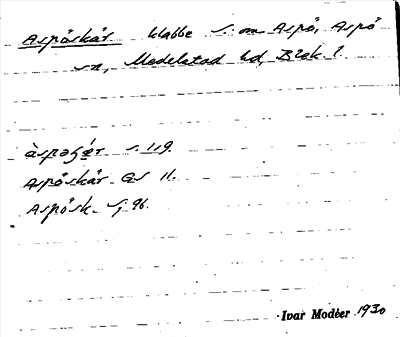 Aspöskär klabbe S. om Aspö, Aspö
sn, Medelstad hd, Blek l.
àspəʂǽr s. 119.
Aspöskär GS 11.
Aspösk. Sj 96.
Ivar Modéer 1930